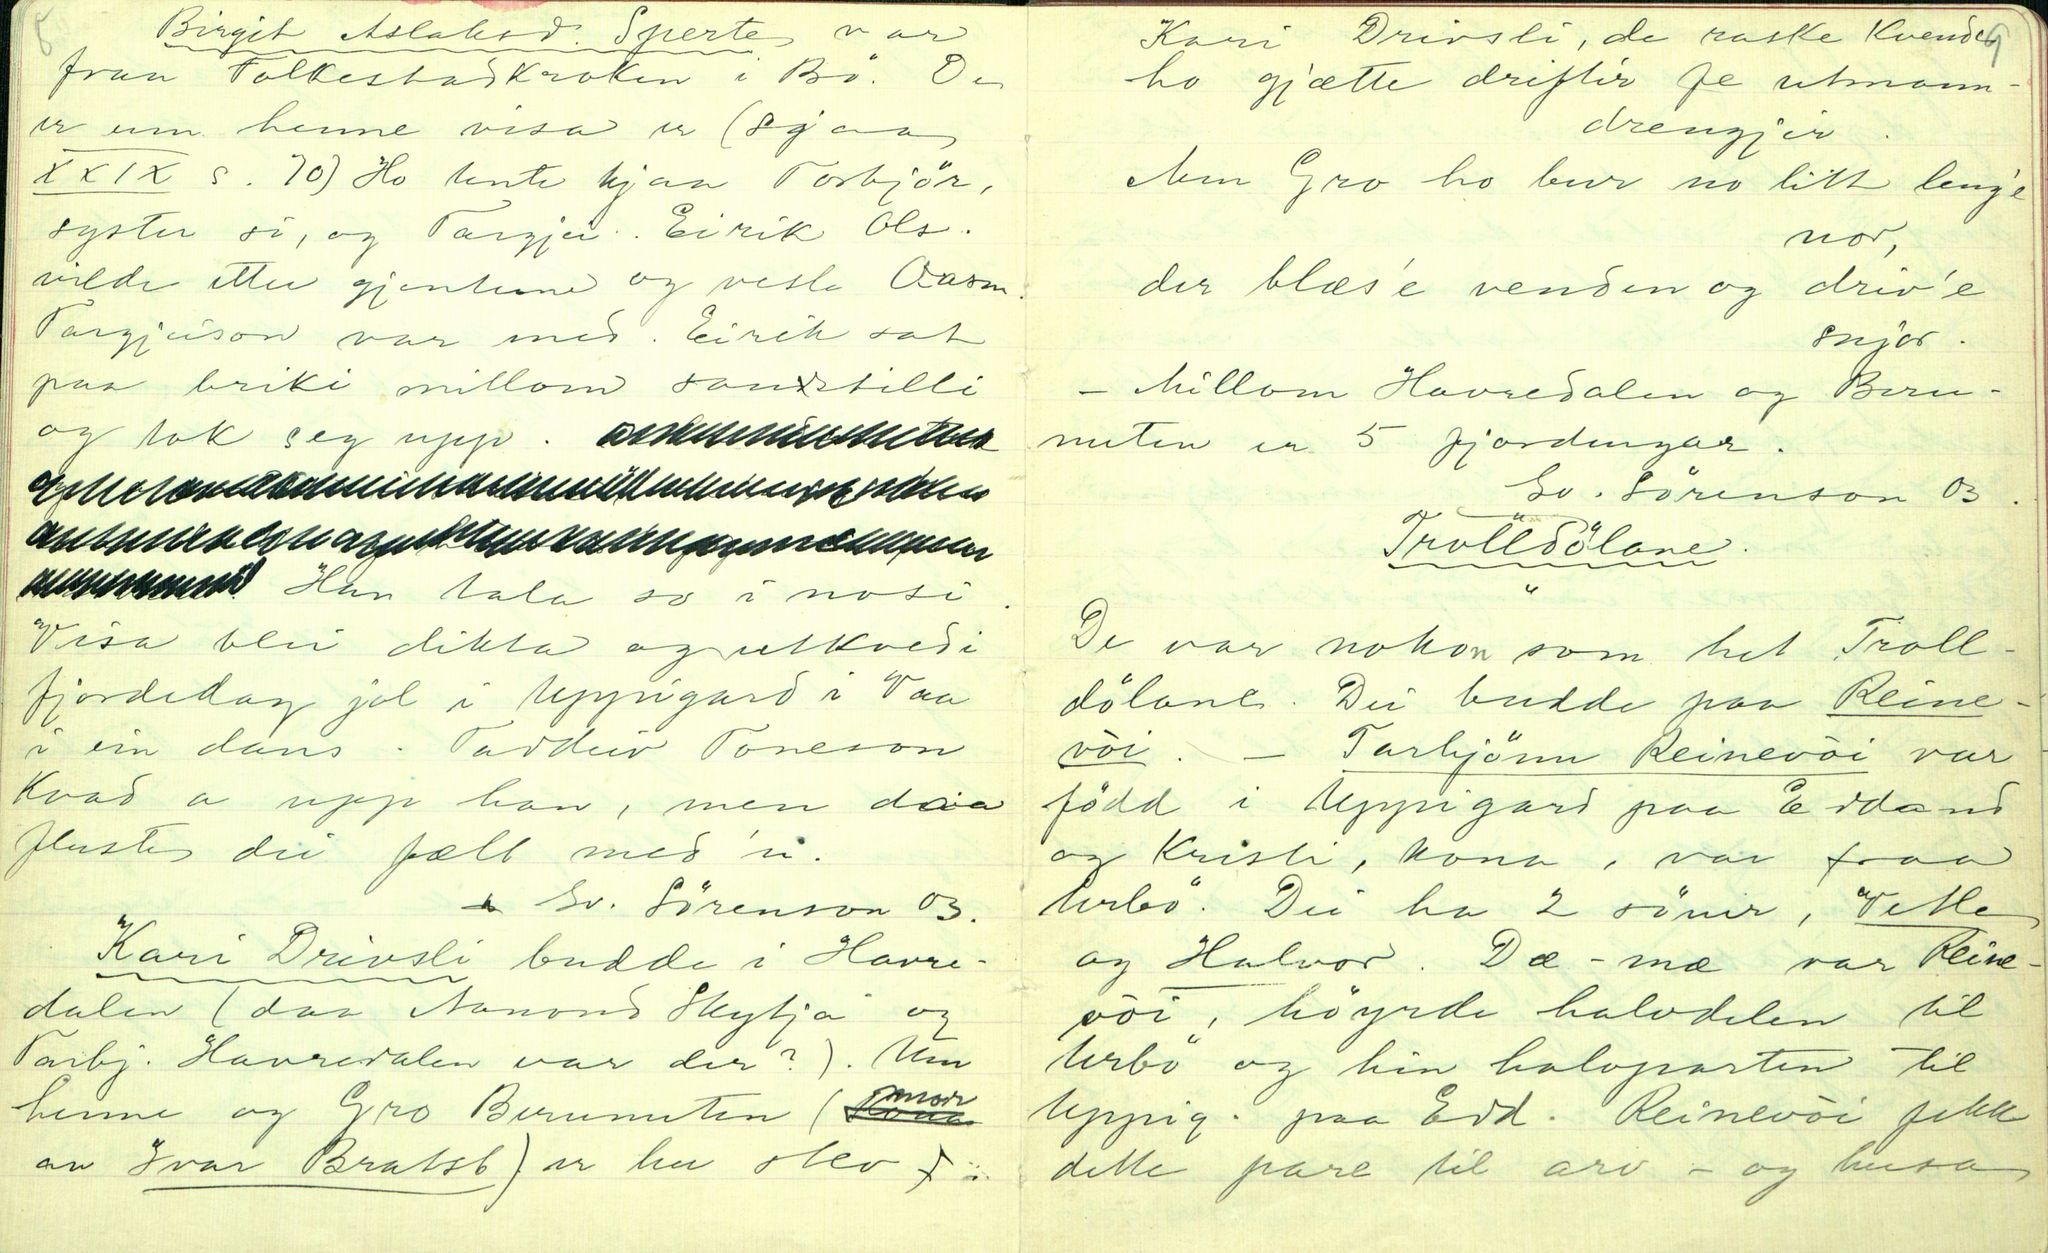 8
Birgit Aslaksd. Sperte var
fraa Folkestadkroken i Bö. De
er um henne visa er (sjaa
XXIX s. 70) Ho tente hjaa Torbjör,
syster si, og Targjei. Eirik Ols.
vilde etter gjentune og vesle Aasm.
Targjeison var med. Eirik sat
paa briki millom
og tok seg upp.
Han tala so i nosi.
Visa blei dikta og utkvedi
fjordedag jol i Uppigard i Vaa
i ein dans. Taddeiv Toneson
kvad a upp han, men daa
fluste dei fælt med 'n.
Sv. Sörenson 03.
Kari Drivsli budde i Havre-
dalen (daa Aanond Skytja og
Tarbj. Havredalen var der?). Um
henne og Gro Berunuten (mor
an Ivar Bratsb) er heu stev:
9
Kari Drivsli, de raske kvende,
ho gjætte driftir fe utmann-
drengjir.
Men Gro ho bur no litt leng'e
nor,
der blæs'e venden og driv'e
snjor.
– Millom Havredalen og Beru-
nuten er 5 fjordungar.
Sv. Sörenson 03.
Trolldölane.
De var nokon som het Troll-
dölane. Dei budde paa Reine-
vòi. – Tarbjönn Reinevòi var
född i Uppigard paa Eddand
og Kristi, kona, var fraa
Urbö. Dei ha 2 sönir, Vetle
og Halvor. Dæ-mæ var Reine-
vòi, höyrde halvdelen til
Urbö og hin halvparten til
Uppig. paa Edd. Reinevòi fekk
dette pare til arv – og husa